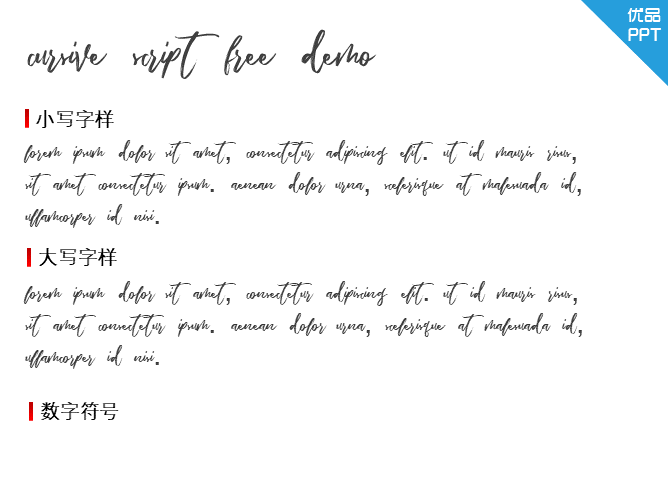 优品
PPT
cursive script free demo
小写字样
lorem ipsum dolor sit amet, consectetur adipiscing elit. ut id mauris risus,
sit amet consectetur ipsum. aenean dolor urna, scelerisque at malesuada id,
ullamcorper id nisi.
大写字样
lorem ipsum dolor sit amet, consectetur adipiscing elit. ut id mauris risus,
sit amet consectetur ipsum. aenean dolor urna, scelerisque at malesuada id,
ullamcorper id nisi.
数字符号